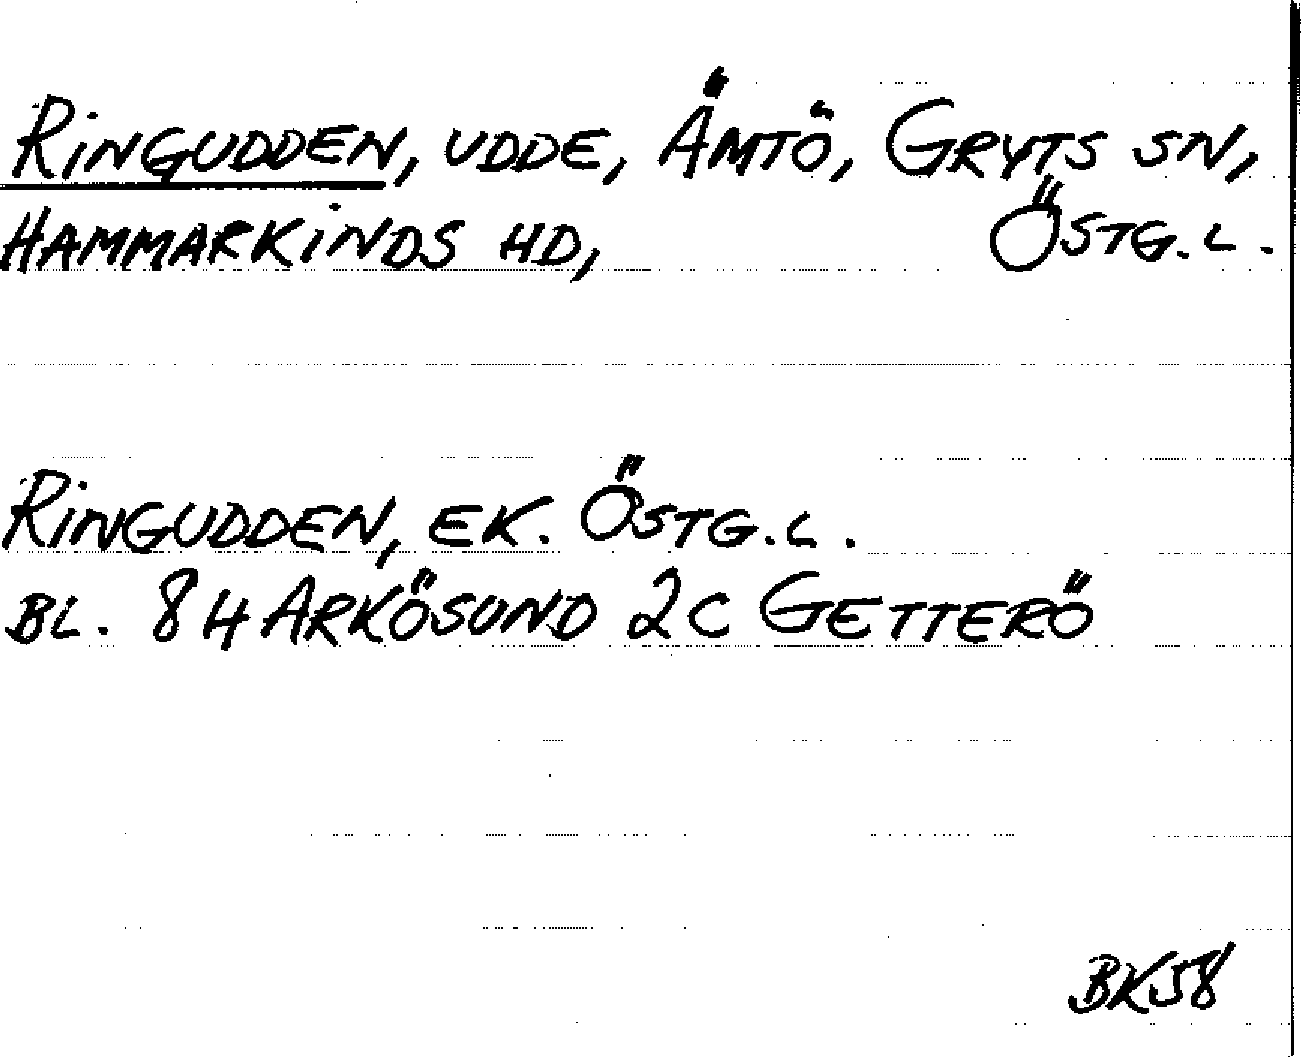 RINGUDDEN, UDDE, ÄMTÖ, GRYTS SN,
HAMMARKINDS HD, ÖSTG.L.
RINGUDDEN, EK. ÖSTG.L.
BL. 84 ARKÖSUND 2C GETTERÖ
BK58